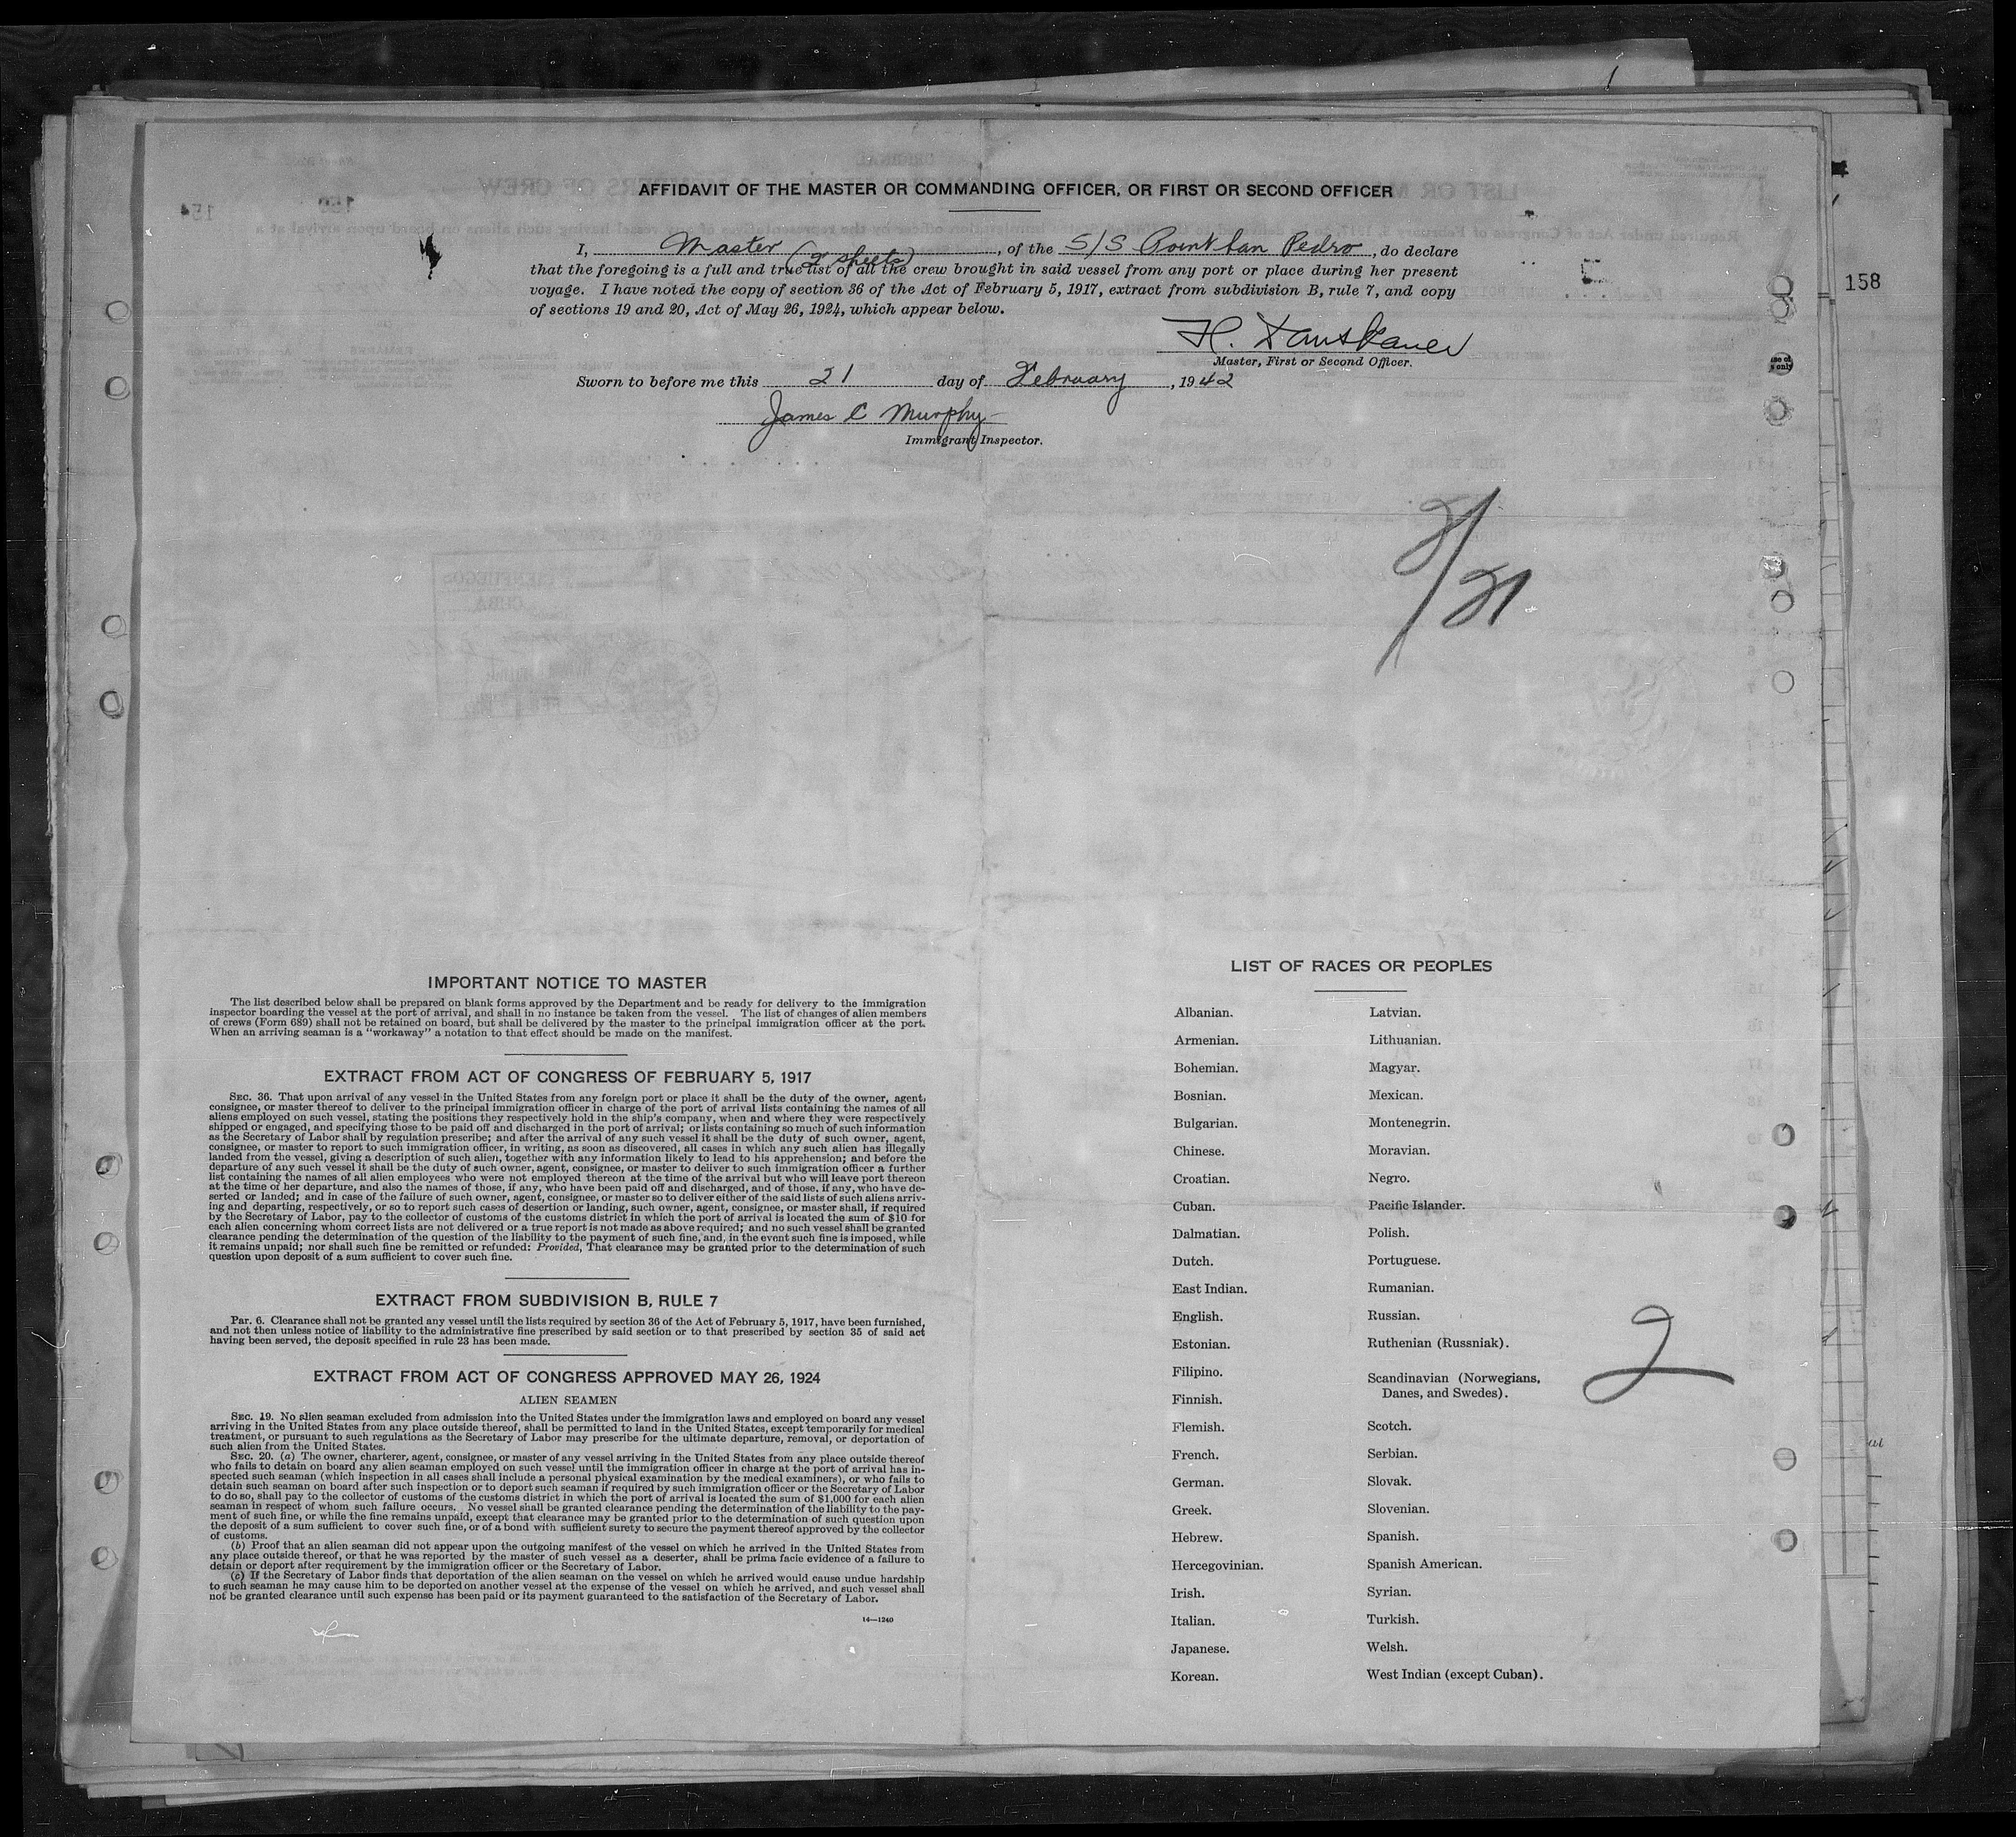 AFFIDAVIT OF THE MASTER OR COMMANDING OFFICER, OR FIRST OR SECOND OFFICER
I, Master (2 sheets), of the S/S Point San Pedro, do declare
that the foregoing is a full and true list of all the crew brought in said vessel from any port or place during her present
voyage. I have noted the copy of section 36 of the Act of February 5, 1917, extract from subdivision B, rule 7, and copy
of sections 19 and 20, Act of May 26, 1924, which appear below.
H.
Master, First or Second Officer.
Sworn to before me this 21 day of February, 1942
James C Murphy
Immigrant Inspector.
158
2/21
IMPORTANT NOTICE TO MASTER
The list described below shall be prepared on blank forms approved by the Department and be ready for delivery to the immigration
inspector boarding the vessel at the port of arrival, and shall in no instance be taken from the vessel. The list of changes of alien members
of crews (Form 689) shall not be retained on board, but shall be delivered by the master to the principal immigration officer at the port.
When an arriving seaman is a "workaway" a notation to that effect should be made on the manifest.
EXTRACT FROM ACT OF CONGRESS OF FEBRUARY 5, 1917
SEC. 36. That upon arrival of any vessel in the United States from any foreign port or place it shall be the duty of the owner, agent,
consignee, or master thereof to deliver to the principal immigration officer in charge of the port of arrival lists containing the names of all
aliens employed on such vessel, stating the positions they respectively hold in the ship's company, when and where they were respectively
shipped or engaged, and specifying those to be paid off and discharged in the port of arrival; or lists containing so much of such information
as the Secretary of Labor shall by regulation prescribe; and after the arrival of any such vessel it shall be the duty of such owner, agent,
consignee, or master to report to such immigration officer, in writing, as soon as discovered, all cases in which any such alien has illegally
landed from the vessel, giving a description of such alien, together with any information likely to lead to his apprehension; and before the
departure of any such vessel it shall be the duty of such owner, agent, consignee, or master to deliver to such immigration officer a further
list containing the names of all alien employees who were not employed thereon at the time of the arrival but who will leave port thereon
at the time of her departure, and also the names of those, if any, who have been paid off and discharged, and of those, if any, who have de-
serted or landed; and in case of the failure of such owner, agent, consignee, or master so to deliver either of the said lists of such aliens arriv-
ing and departing, respectively, or so to report such cases of desertion or landing, such owner, agent, consignee, or master shall, if required
by the Secretary of Labor, pay to the collector of customs of the customs district in which the port of arrival is located the sum of $10 for
each alien concerning whom correct lists are not delivered or a true report is not made as above required; and no such vessel shall be granted
clearance pending the determination of the question of the liability to the payment of such fine, and, in the event such fine is imposed, while
it remains unpaid; nor shall such fine be remitted or refunded: Provided, That clearance may be granted prior to the determination of such
question upon deposit of a sum sufficient to cover such fine.
EXTRACT FROM SUBDIVISION B, RULE 7
Par. 6. Clearance shall not be granted any vessel until the lists required by section 36 of the Act of February 5, 1917, have been furnished,
and not then unless notice of liability to the administrative fine prescribed by said section or to that prescribed by section 35 of said act
having been served, the deposit specified in rule 23 has been made.
EXTRACT FROM ACT OF CONGRESS APPROVED MAY 26, 1924
ALIEN SEAMEN
SEC. 19. No alien seaman excluded from admission into the United States under the immigration laws and employed on board any vessel
arriving in the United States from any place outside thereof, shall be permitted to land in the United States, except temporarily for medical
treatment, or pursuant to such regulations as the Secretary of Labor may prescribe for the ultimate departure, removal, or deportation of
such alien from the United States.
SEC. 20. (a) The owner, charterer, agent, consignee, or master of any vessel arriving in the United States from any place outside thereof
who fails to detain on board any alien seaman employed on such vessel until the immigration officer in charge at the port of arrival has in-
spected such seaman (which inspection in all cases shall include a personal physical examination by the medical examiners), or who fails to
detain such seaman on board after such inspection or to deport such seaman if required by such immigration officer or the Secretary of Labor
to do so, shall pay to the collector of customs of the customs district in which the port of arrival is located the sum of $1,000 for each alien
seaman in respect of whom such failure occurs. No vessel shall be granted clearance pending the determination of the liability to the pay-
ment of such fine, or while the fine remains unpaid, except that clearance may be granted prior to the determination of such question upon
the deposit of a sum sufficient to cover such fine, or of a bond with sufficient surety to secure the payment thereof approved by the collector
of customs.
(b) Proof that an alien seaman did not appear upon the outgoing manifest of the vessel on which he arrived in the United States from
any place outside thereof, or that he was reported by the master of such vessel as a deserter, shall be prima facie evidence of a failure to
detain or deport after requirement by the immigration officer or the Secretary of Labor.
(c) If the Secretary of Labor finds that deportation of the alien seaman on the vessel on which he arrived would cause undue hardship
to such seaman he may cause him to be deported on another vessel at the expense of the vessel on which he arrived, and such vessel shall
not be granted clearance until such expense has been paid or its payment guaranteed to the satisfaction of the Secretary of Labor.
14—1240
LIST OF RACES OR PEOPLES
Albanian.
Armenian.
Bohemian.
Bosnian.
Bulgarian.
Chinese.
Croatian.
Cuban.
Dalmatian.
Dutch.
East Indian.
English.
Estonian.
Filipino.
Finnish.
Flemish.
French.
German.
Greek.
Hebrew.
Hercegovinian.
Irish.
Italian.
Japanese.
Korean.
Latvian.
Lithuanian.
Magyar.
Mexican.
Montenegrin.
Moravian.
Negro.
Pacific Islander.
Polish.
Portuguese.
Rumanian.
Russian.
Ruthenian (Russniak).
Scandinavian (Norwegians,
Danes, and Swedes).
Scotch.
Serbian.
Slovak.
Slovenian.
Spanish.
Spanish American.
Syrian.
Turkish.
Welsh.
West Indian (except Cuban).
2